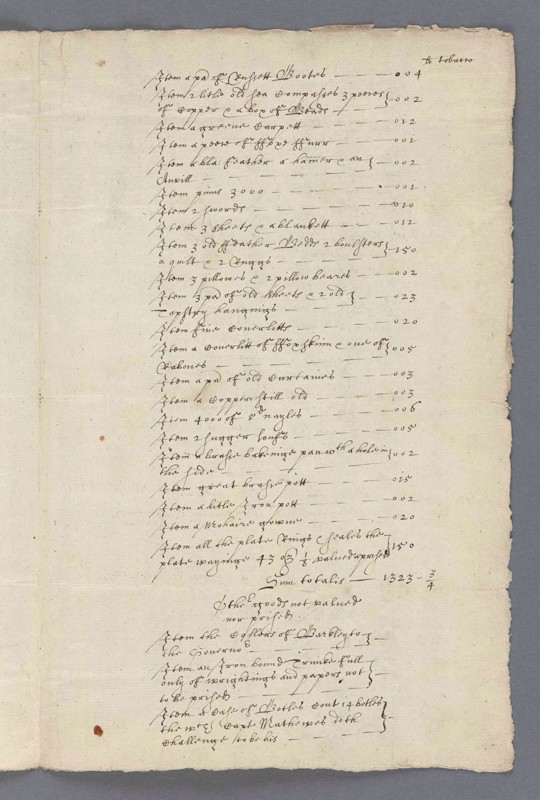 li tobacco
Item a pr of Russett Bootes — — — 004
Item 2 litle old sea Compasses 3 peeces
of Copper & a box of Beads — — 002
Item a greene Carpett — — — 012
Item a peece of ffoxe ffurr — — 001
Item a bla: feather a hamer & an
Anvill — — — 002
Item pinns 3000 — — — 001
Item 2 swords — — — 010
Item 3 sheets & a blankett — — 012
Item 3 old ffeather Bedds 2 boulsters
a quilt & 2 Ruggs — — — 150
Item 3 pillowes & 2 pillow beares — — 002
Item 3 pr of old sheets & 2 old
Tapstry hangings — — 023
Item five Coverlitts — — — 020
Item a Coverlitt of ffoxskinn & one of
— — — 005
Item a pr of old Curtaines — — 003
Item a Copper still old — — 003
Item 4000 of 5d nayles — — 006
Item 2 sugger loafs — — — 005
Item a brasse bakeinge pan wth a hole in
the side — — — 002
Item great brasse pott — — 015
Item a litle Iron pott — — — 002
Item a Mohaire gowne — — — 020
Item all the plate Rings & seales the
plate wayinge 43 oz ½ valued & prised 150
Sum totalis — 1323 - ¾
Other goods not valued
nor prised
Item the Collers of Barkley to
the Governor — —
Item an Iron bound Trunke full
only of wrightings and papers not
to be prised — — —
Item a Case of Botles Cont 14 botles
the wch Capt Mathewes doth
Challenge to be his — —